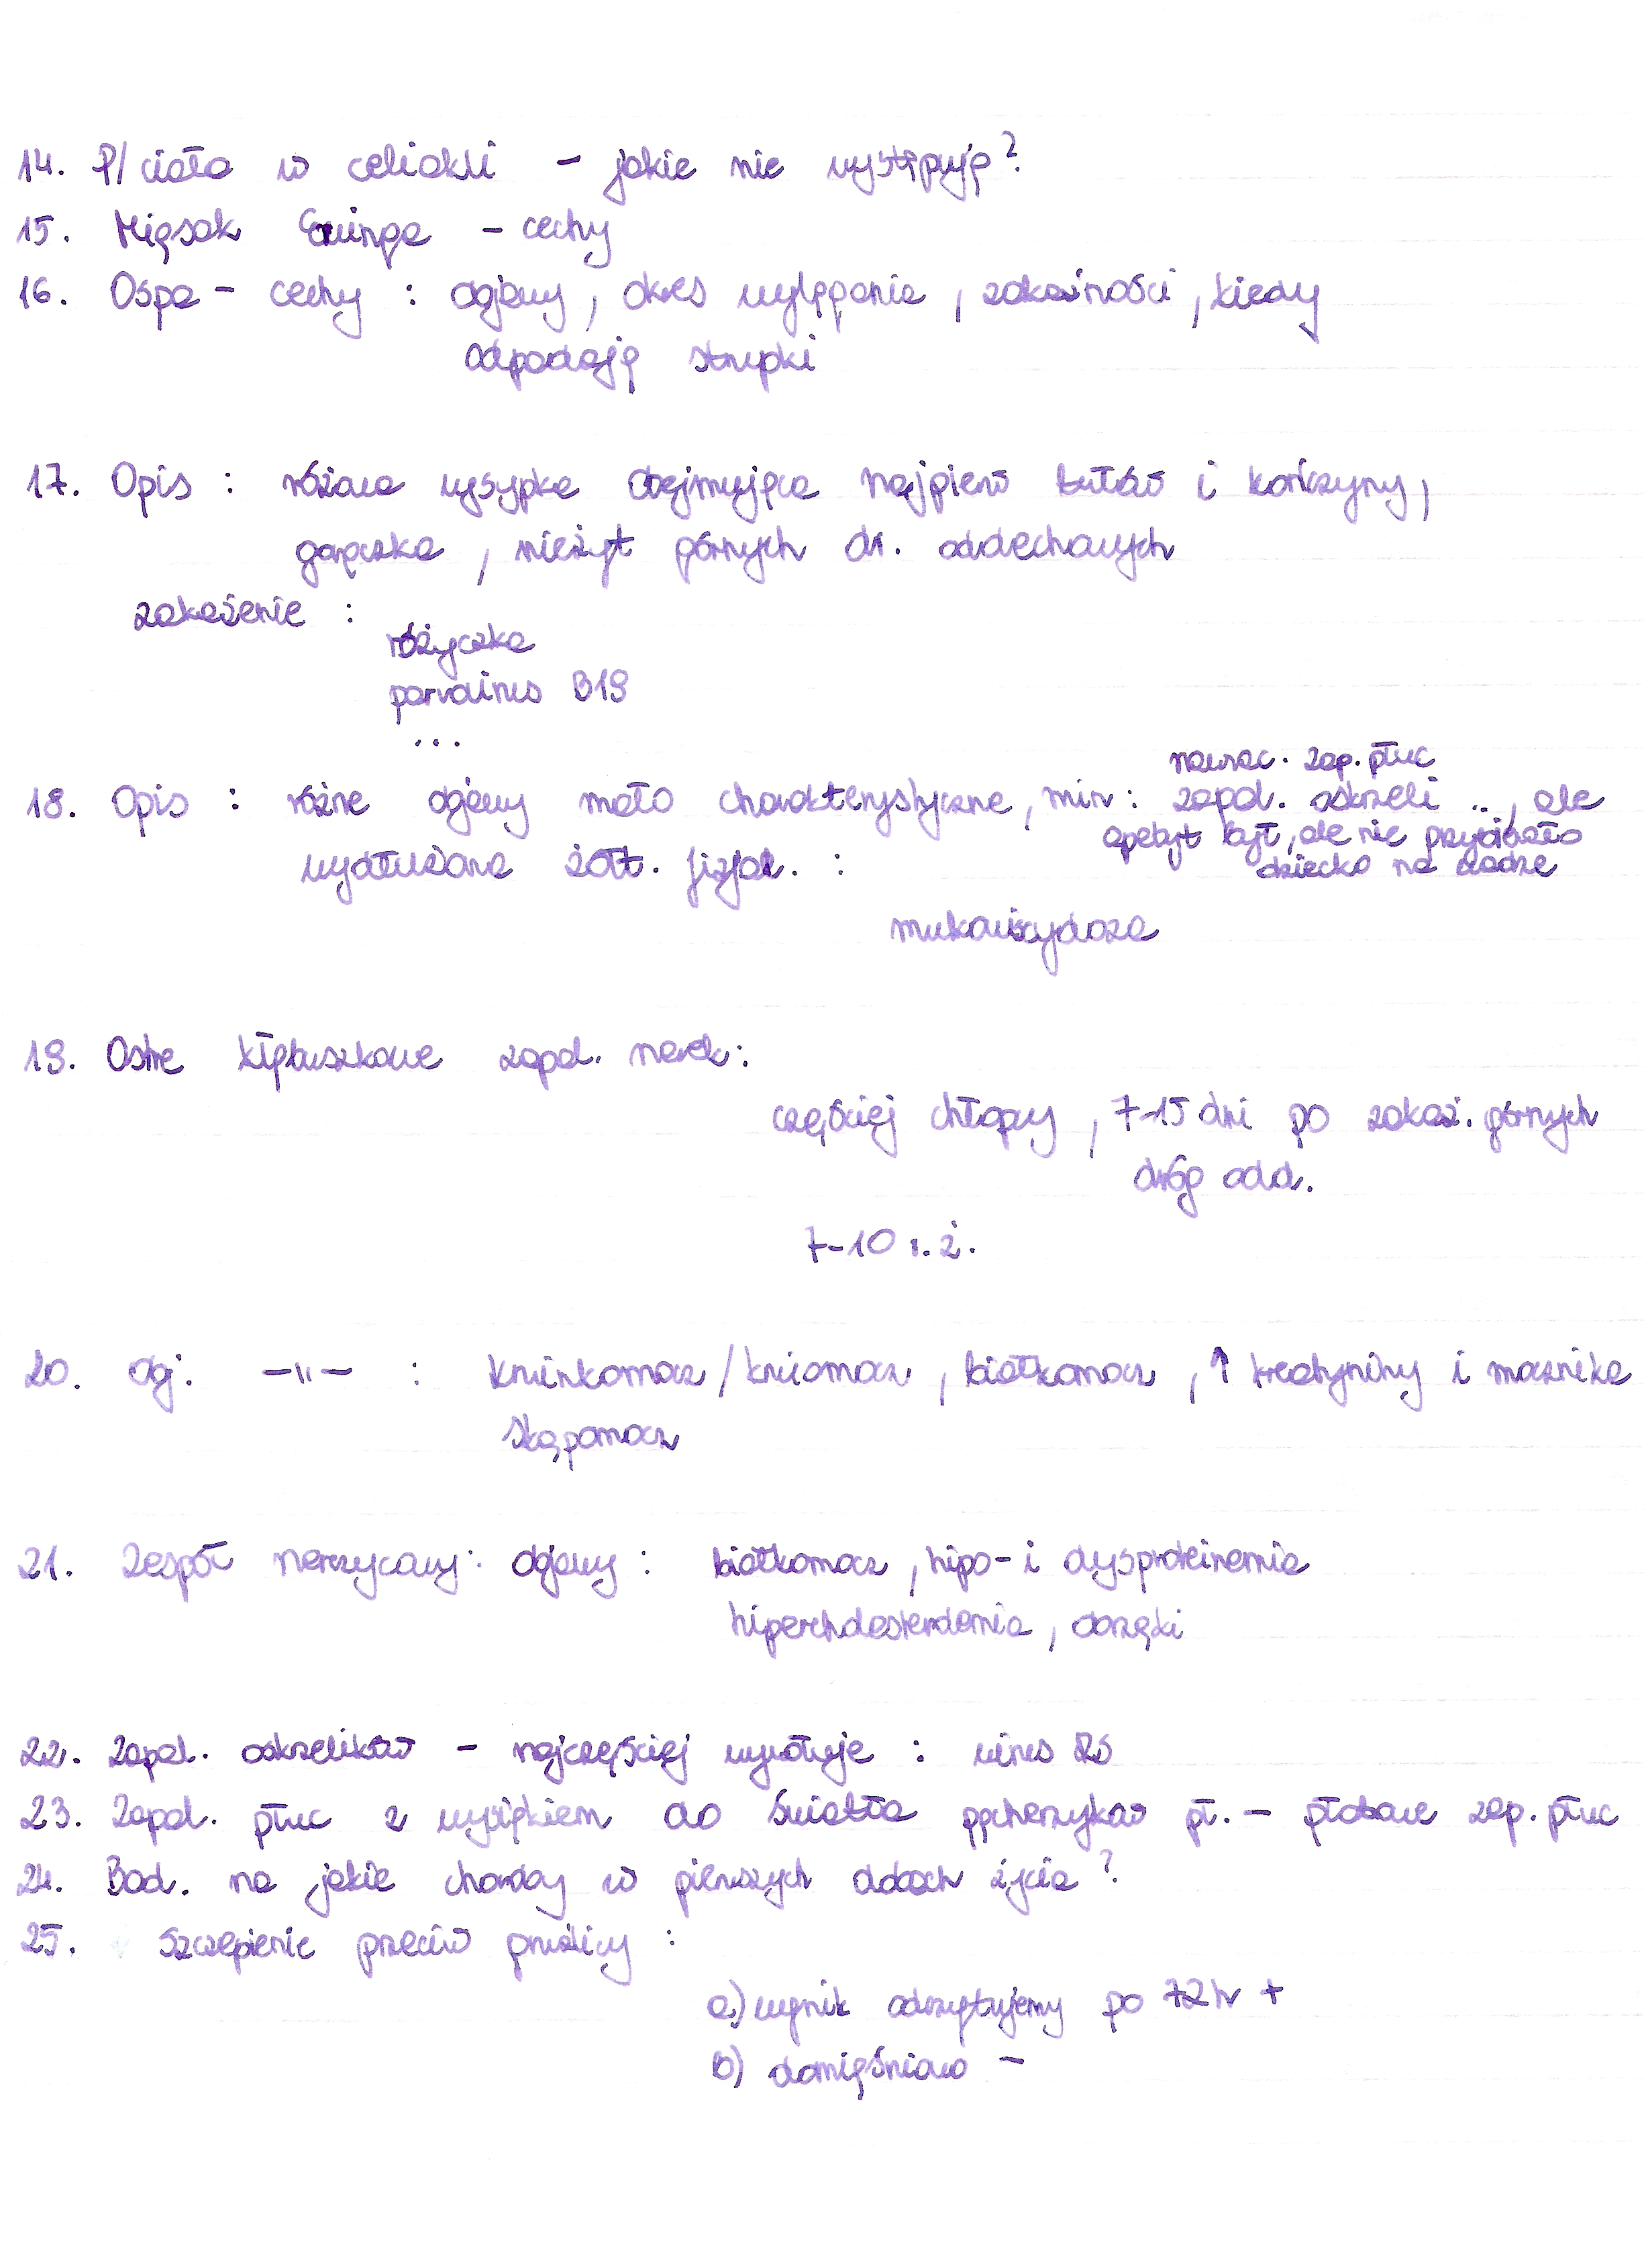 14. P/ciała w celiakii - jakie nie występują?
15. Mięsak Ewinga - cechy
16. Ospa - cechy : objawy, okres wylęgania, zakaźności, kiedy
odpadają strupki
17. Opis : różowa wysypka obejmująca najpierw tułów i kończyny,
gorączka, nieżyt górnych dr. oddechowych
zakażenie :
różyczka
parvowirus B19
...
nawrac. zap. płuc
18. Opis : różne objawy mało charakterystyczne, min : zapal. oskrzeli .., ale
apetyt był, ale nie przybierało
wydłużona żółt. fizjol. :
dziecko na wadze
mukowiscydoza
19. Ostre kłębuszkowe zapal. nerek :
częściej chłopcy, 7-15 dni po zakaż. górnych
dróg odd.
7-10 r. ż.
20. Obj. -"- : krwinkomocz / krwiomocz, białkomocz, ↑ kreatyniny i mocznika
skąpomocz
21. Zespół nerczycowy : objawy : białkomocz, hipo- i dysproteinemia
hipercholesterolemia, obrzęki
22. Zapal. oskrzelików - najczęściej wywołuje : wirus RS
23. Zapal. płuc z wysiękiem do światła pęcherzyków pł. - płatowe zap. płuc
24. Bad. na jakie choroby w pierwszych dobach życia?
25. Szczepienie przeciw gruźlicy :
a) wynik odczytujemy po 72h +
b) domięśniowo -